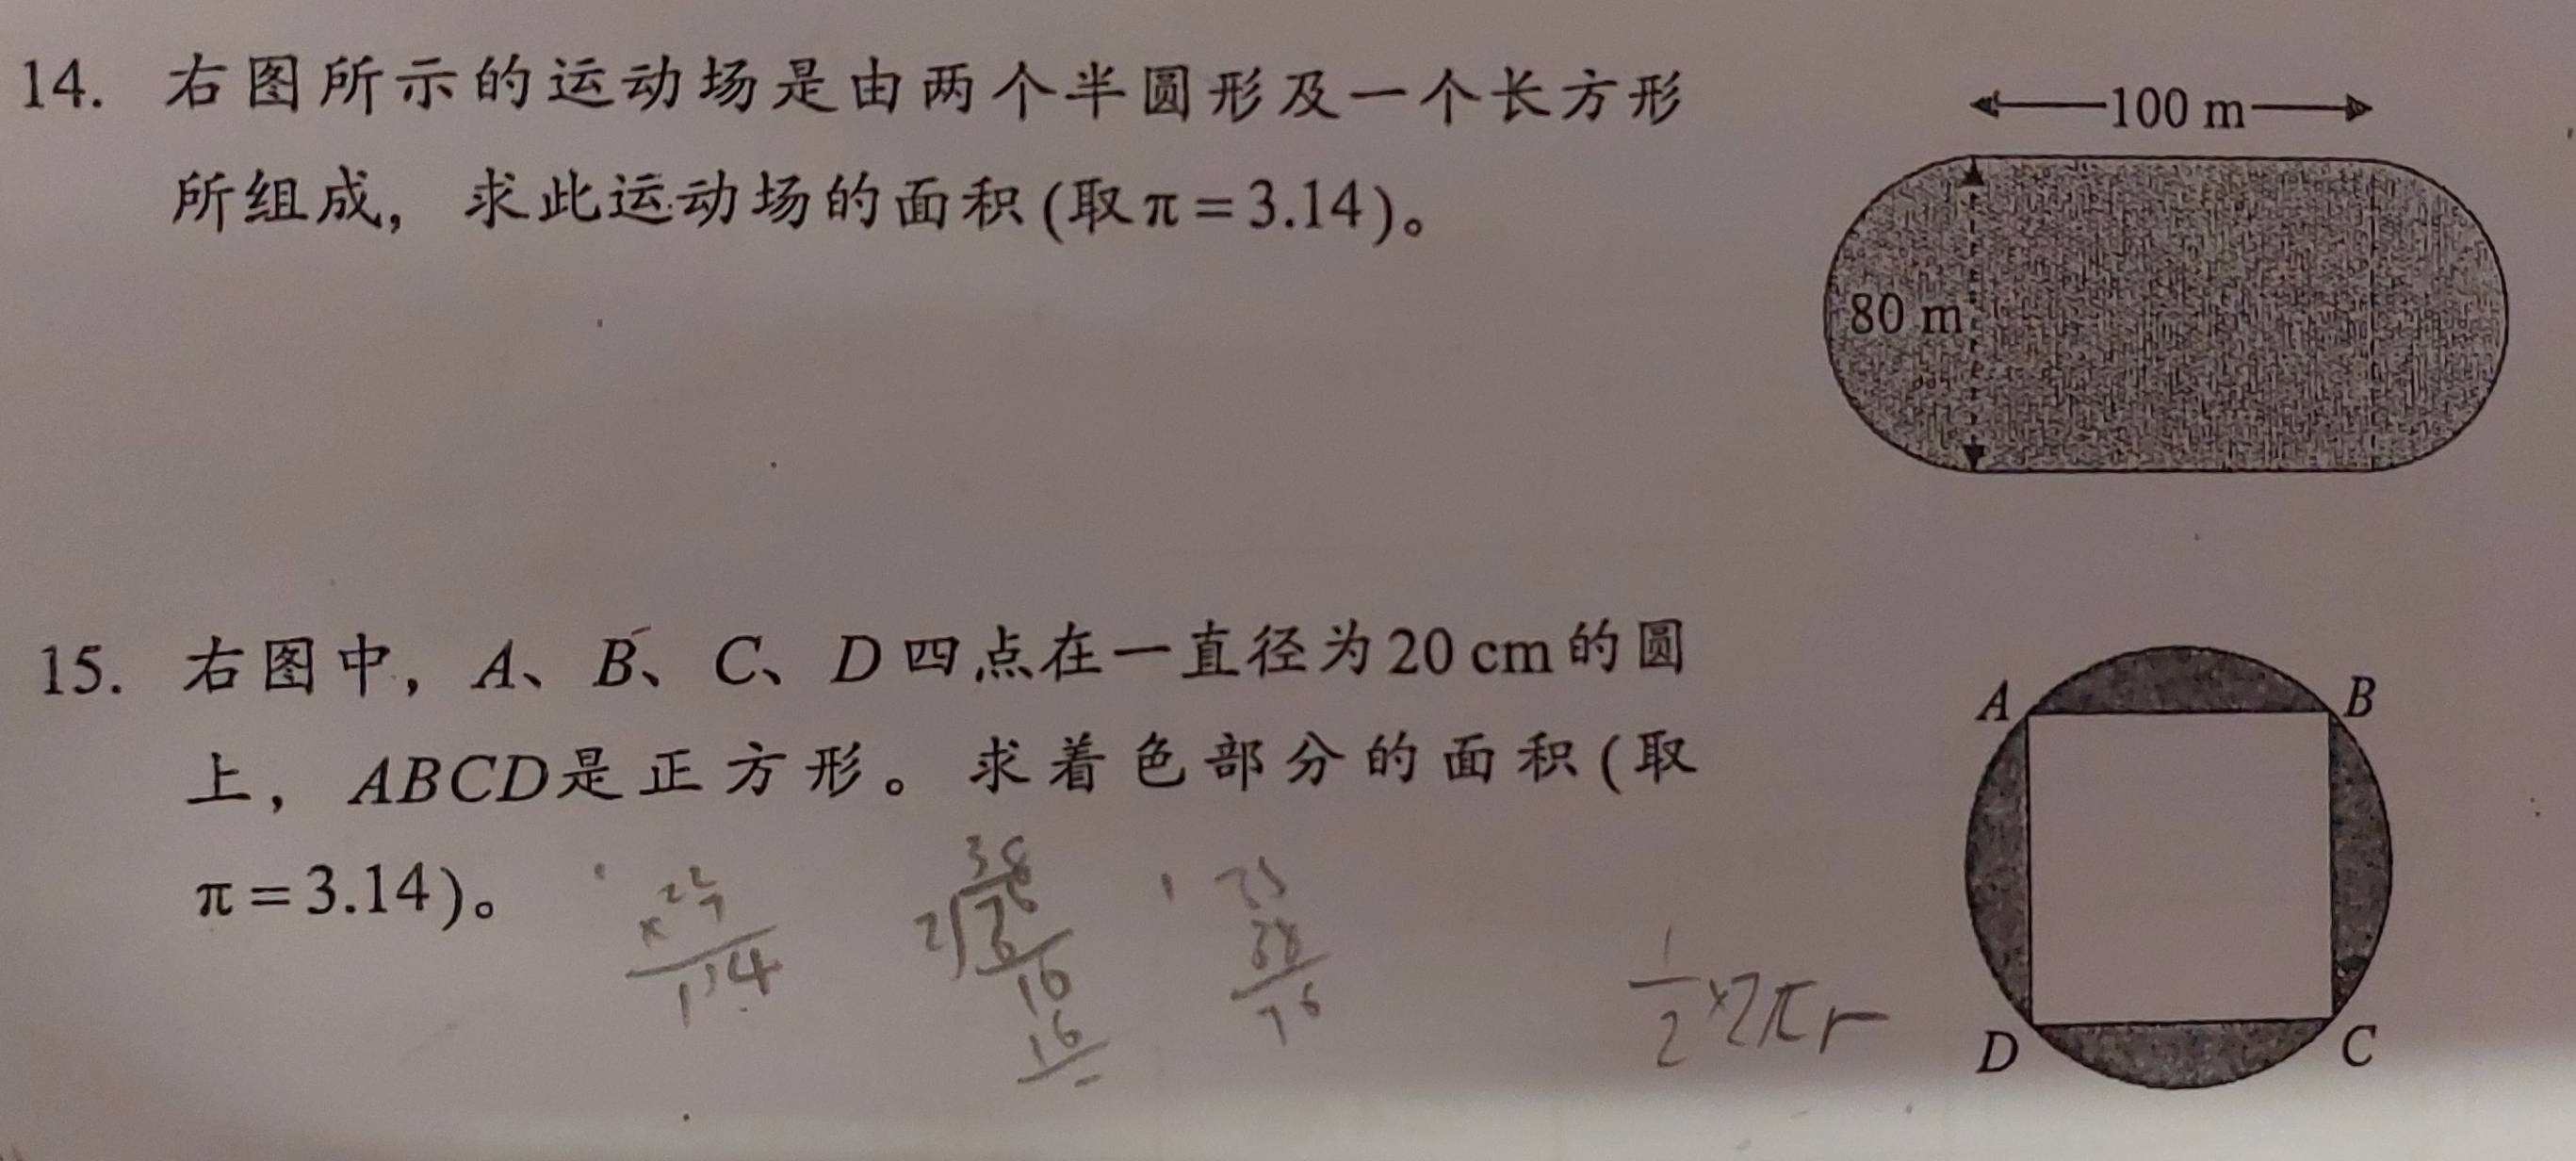 14. 右图所示的运动场是由两个半圆形及一个长方形
所组成，求此运动场的面积(取π=3.14)。
100 m
80 m
15. 右图中，A、B、C、D四点在一直径为20 cm的圆
上，ABCD是正方形。求着色部分的面积(取
π=3.14)。
A
B
D
C
38
2
16
16
38
76
1/2×2πr